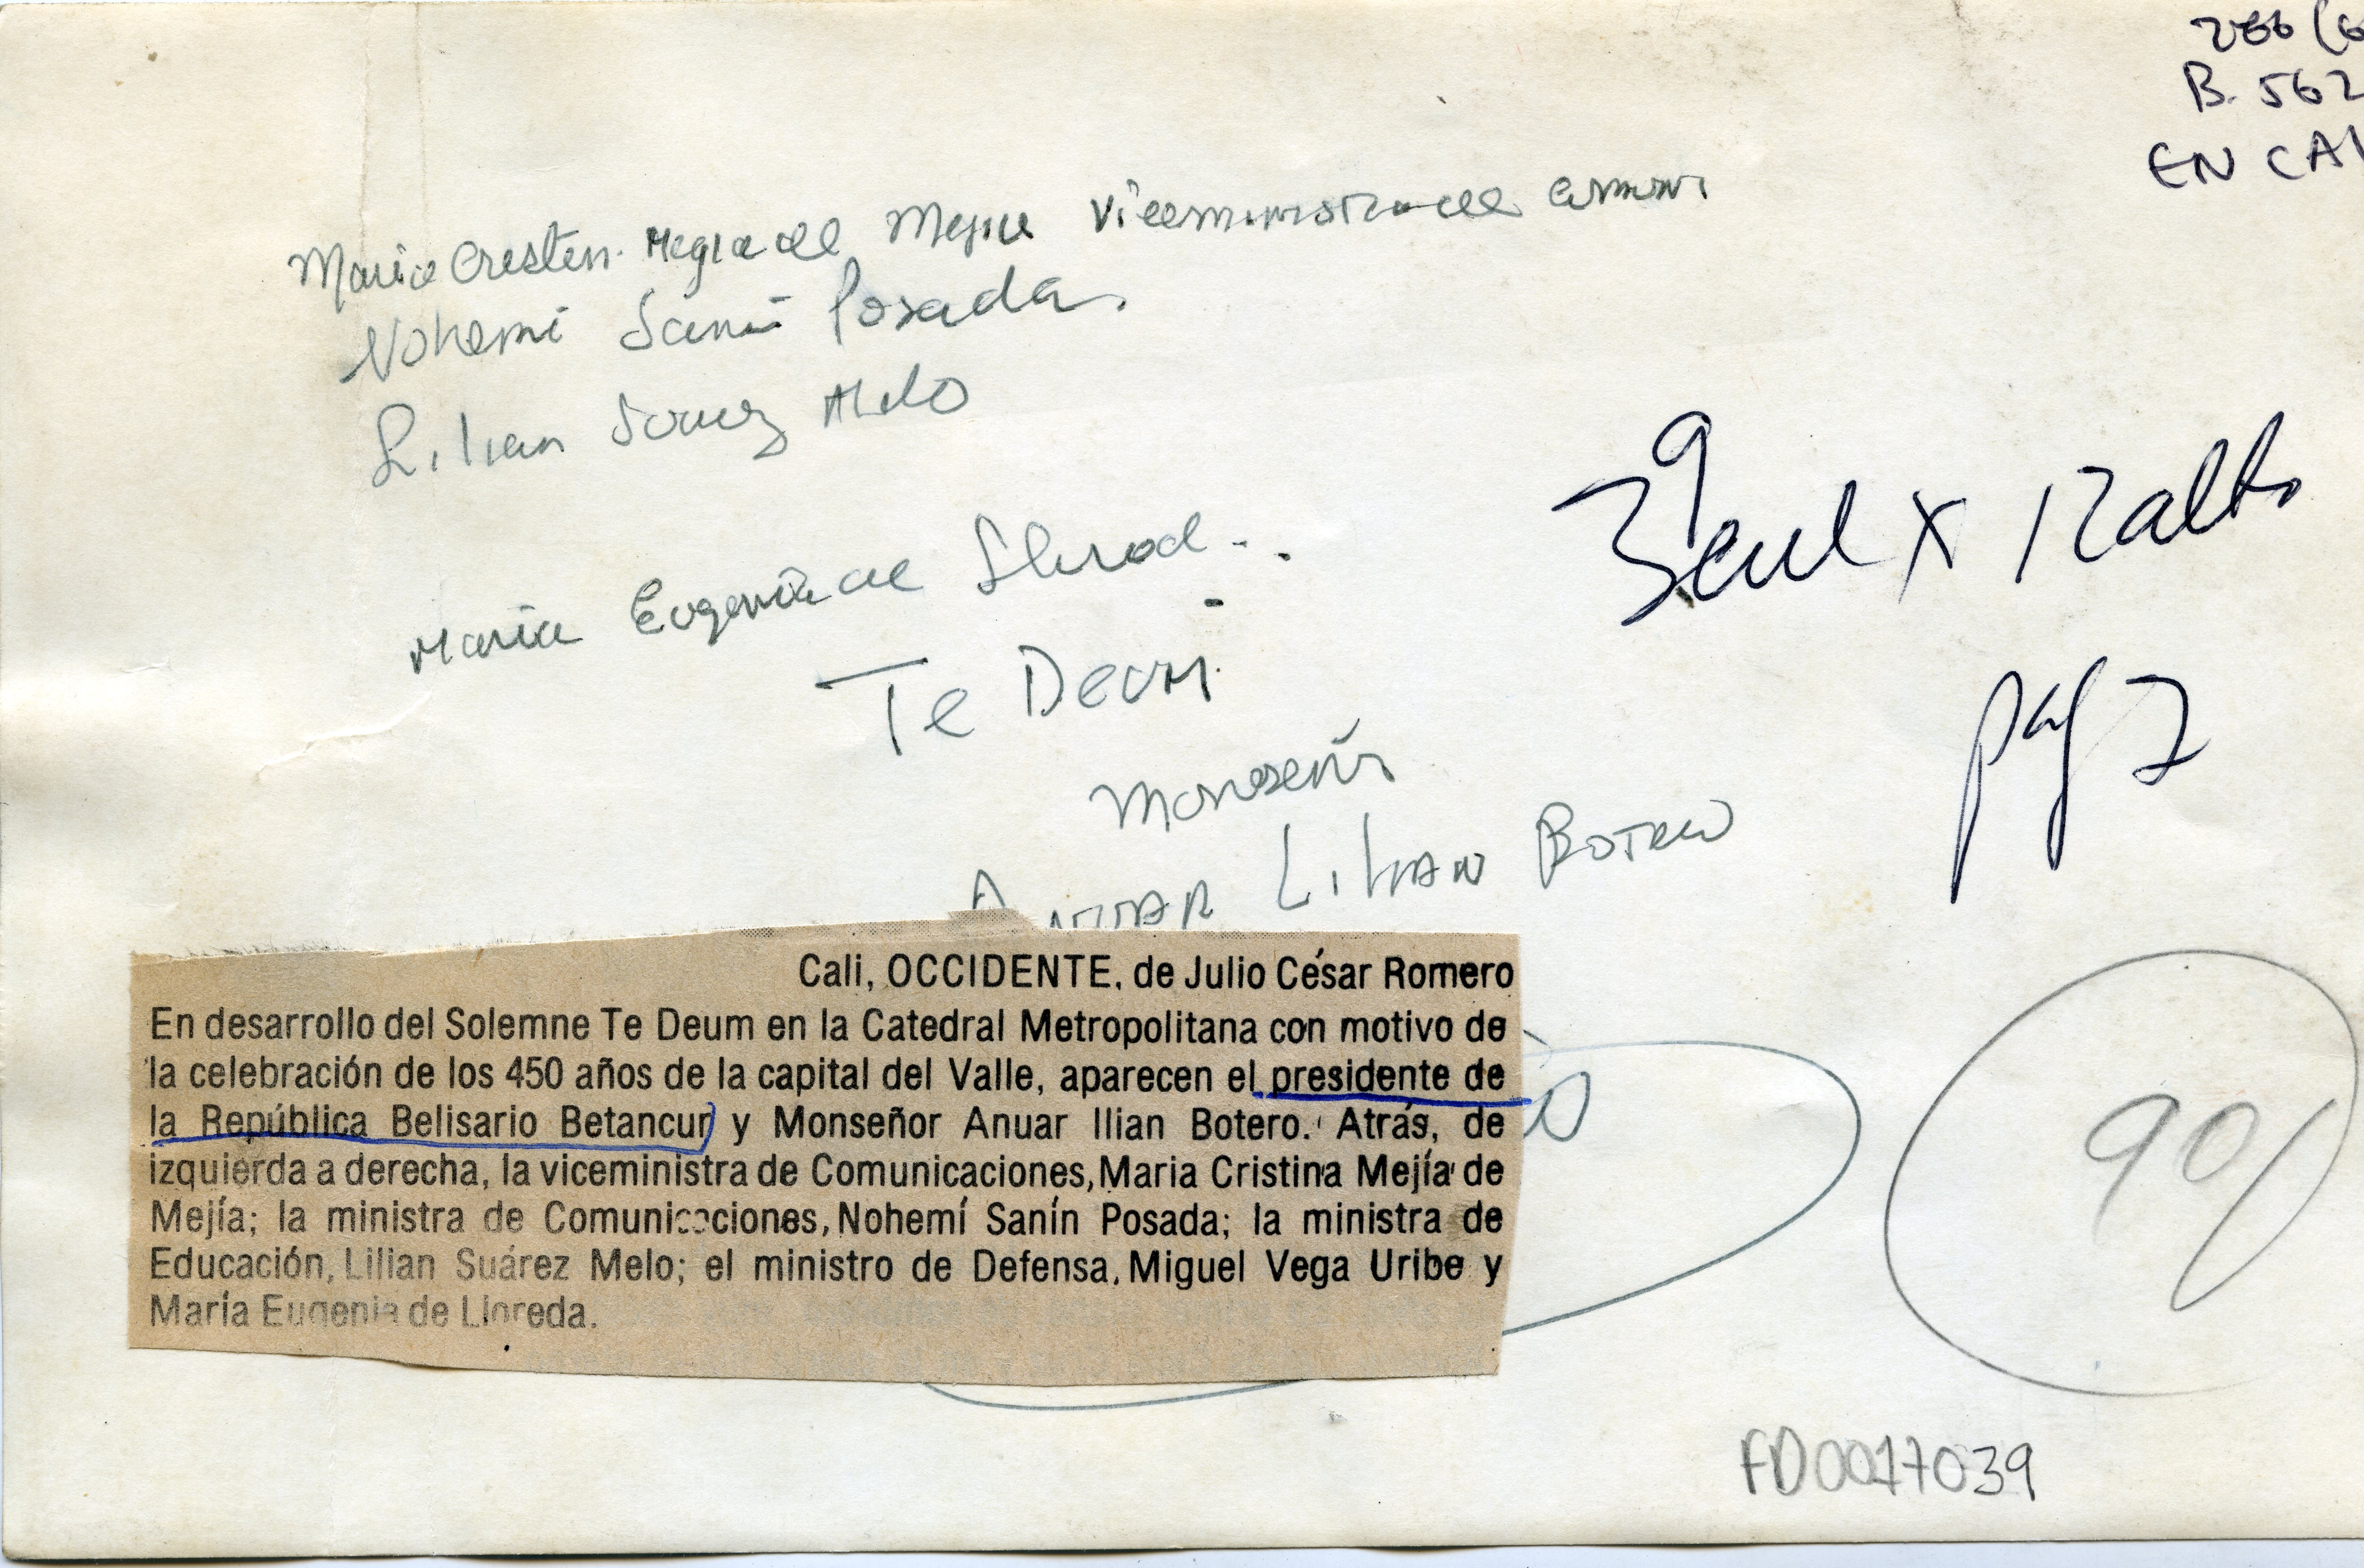 266 (6
B. 562
EN CAL
Maria Cristin. Megia de Mejia Viceministra de comuni
Nohemi Sanin Posada.
Lilian Suarez Melo
Maria Eugenia de
Te Deum
Monseñor
Anuar Lilian Botero
3 cul x 12 alto
pag 7
Cali, OCCIDENTE, de Julio César Romero
En desarrollo del Solemne Te Deum en la Catedral Metropolitana con motivo de
la celebración de los 450 años de la capital del Valle, aparecen el presidente de
la República Belisario Betancur y Monseñor Anuar Ilian Botero. Atrás, de
izquierda a derecha, la viceministra de Comunicaciones, Maria Cristina Mejía de
Mejía; la ministra de Comunicaciones, Nohemí Sanín Posada; la ministra de
Educación, Lilian Suárez Melo; el ministro de Defensa, Miguel Vega Uribe y
María Eugenia de Lloreda.
90/
FD0017039